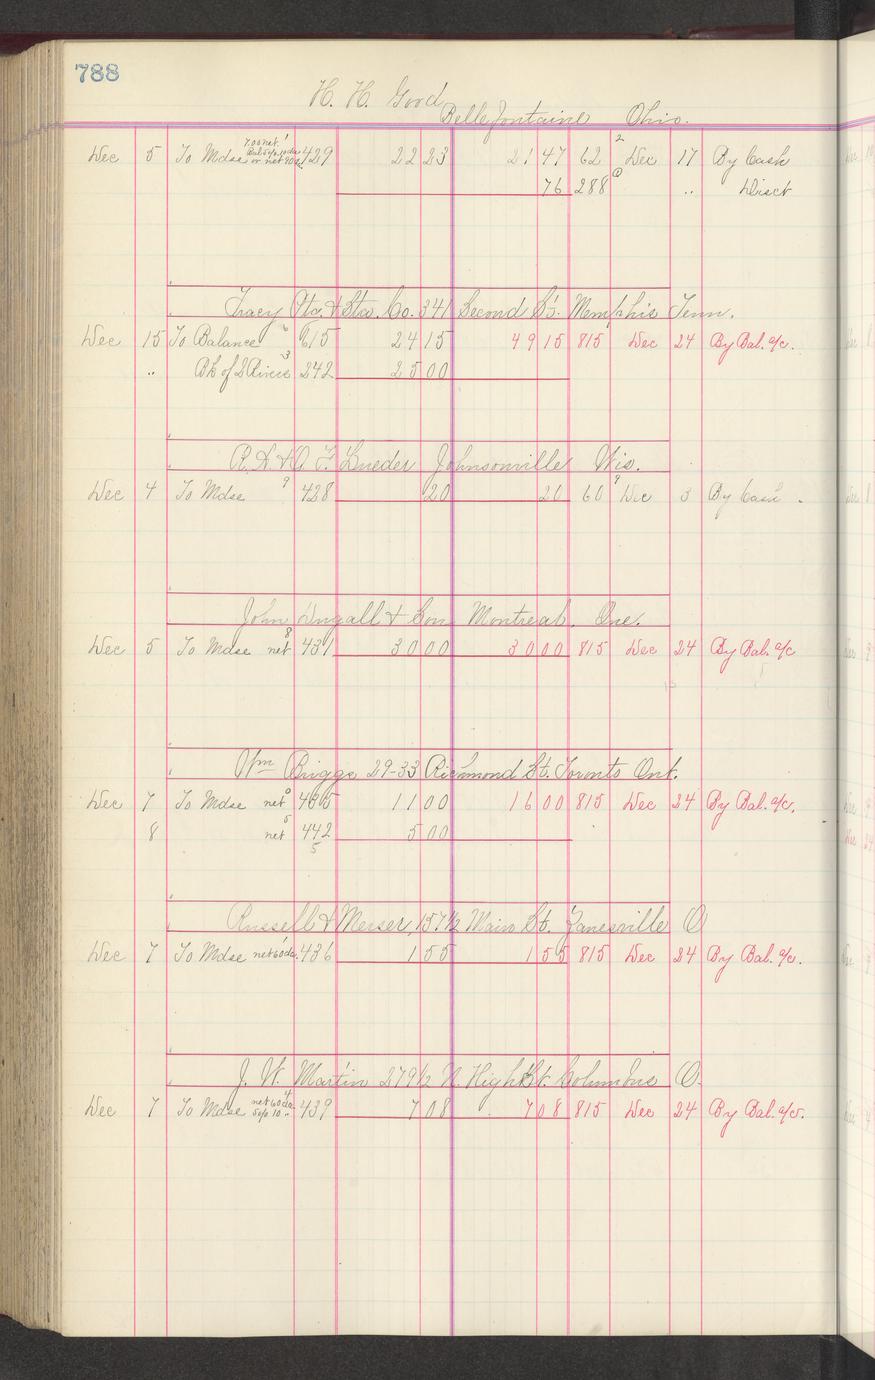 788
H. H. Good
Bellefontaine Ohio.
Dec 5 To Mdse 7.00 net Bal 5% 10 da or net 90 1 429 22 23 21 47 62 2 Dec 17 By Cash
76 288 .. Disct
Tracy Ptg. & Sta. Co. 341 Second St. Memphis Tenn.
Dec 15 To Balance 6 615 24 15 49 15 815 Dec 24 By Bal. a/c.
.. Bk of 2 Rivers 3 242 25 00
R. A. & O. F. Lueder Johnsonville Wis.
Dec 4 To Mdse 9 428 20 20 60 9 Dec 3 By Cash
John Dugall & Son Montreal, Que.
Dec 5 To Mdse net 8 431 30 00 30 00 815 Dec 24 By Bal. a/c
Wm Briggs 29-33 Richmond St. Toronto Ont.
Dec 7 To Mdse net 11 00 16 00 815 Dec 24 By Bal. a/c.
8 net 5 442 5 00
5
Russell & Merser, 157 1/2 Main St. Zanesville O
Dec 7 To Mdse net 60 da. 1 436 1 55 1 55 815 Dec 24 By Bal. a/c.
J. W. Martin 279 1/2 N. High St. Columbus O.
Dec 7 To Mdse net 60 da 5% 10 .. 4 439 7 08 7 08 815 Dec 24 By Bal. a/c.